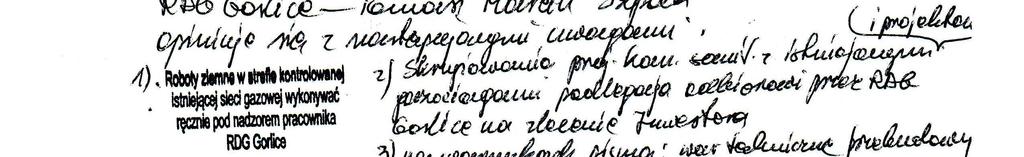 RDG Gorlice – Tomasz Marcin
opiniuje się z następującymi uwagami:
(i projektow
1). Roboty ziemne w strefie kontrolowanej
istniejącej sieci gazowej wykonywać
ręcznie pod nadzorem pracownika
RDG Gorlice
2) Skrzyżowania proj. kan. sanit. z istniejącymi
gazociągami podlegają odbiorowi przez RDG
Gorlice na zlecenie Inwestora
3) na warunkach pisma: war. techniczne przebudowy